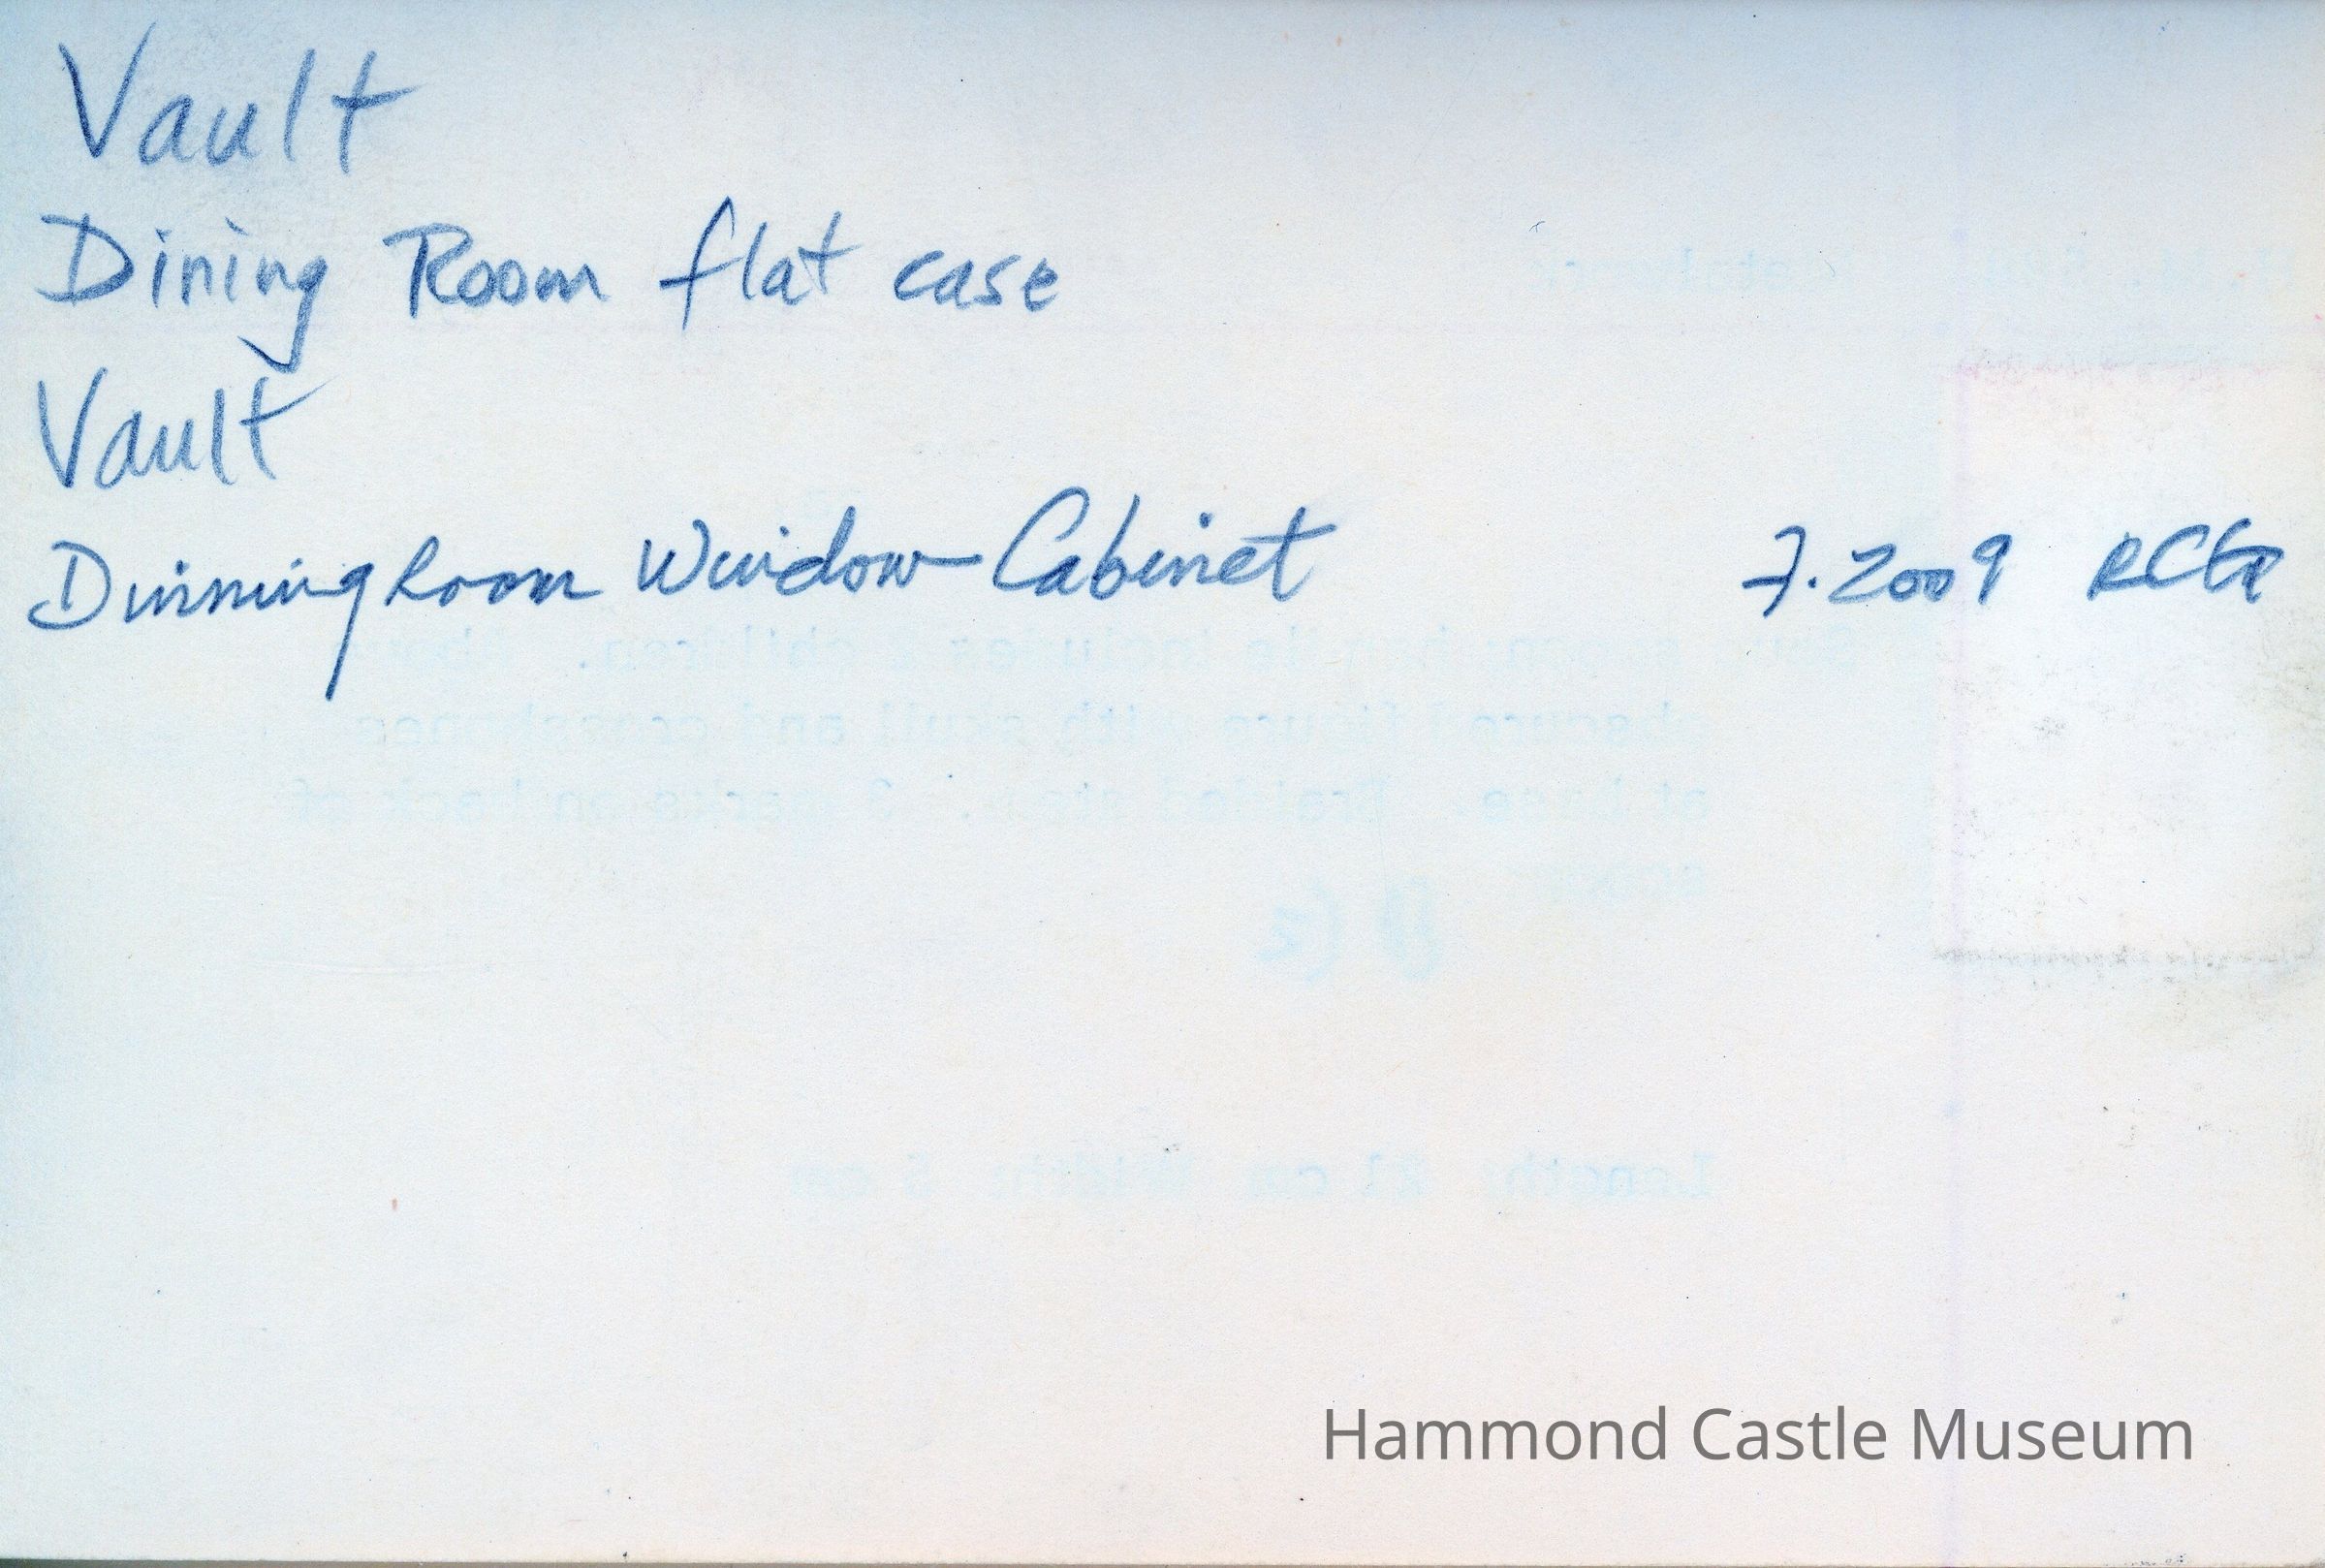 Vault
Dining Room flat case
Vault
Dinning Room Window Cabinet 7.2009
Hammond Castle Museum